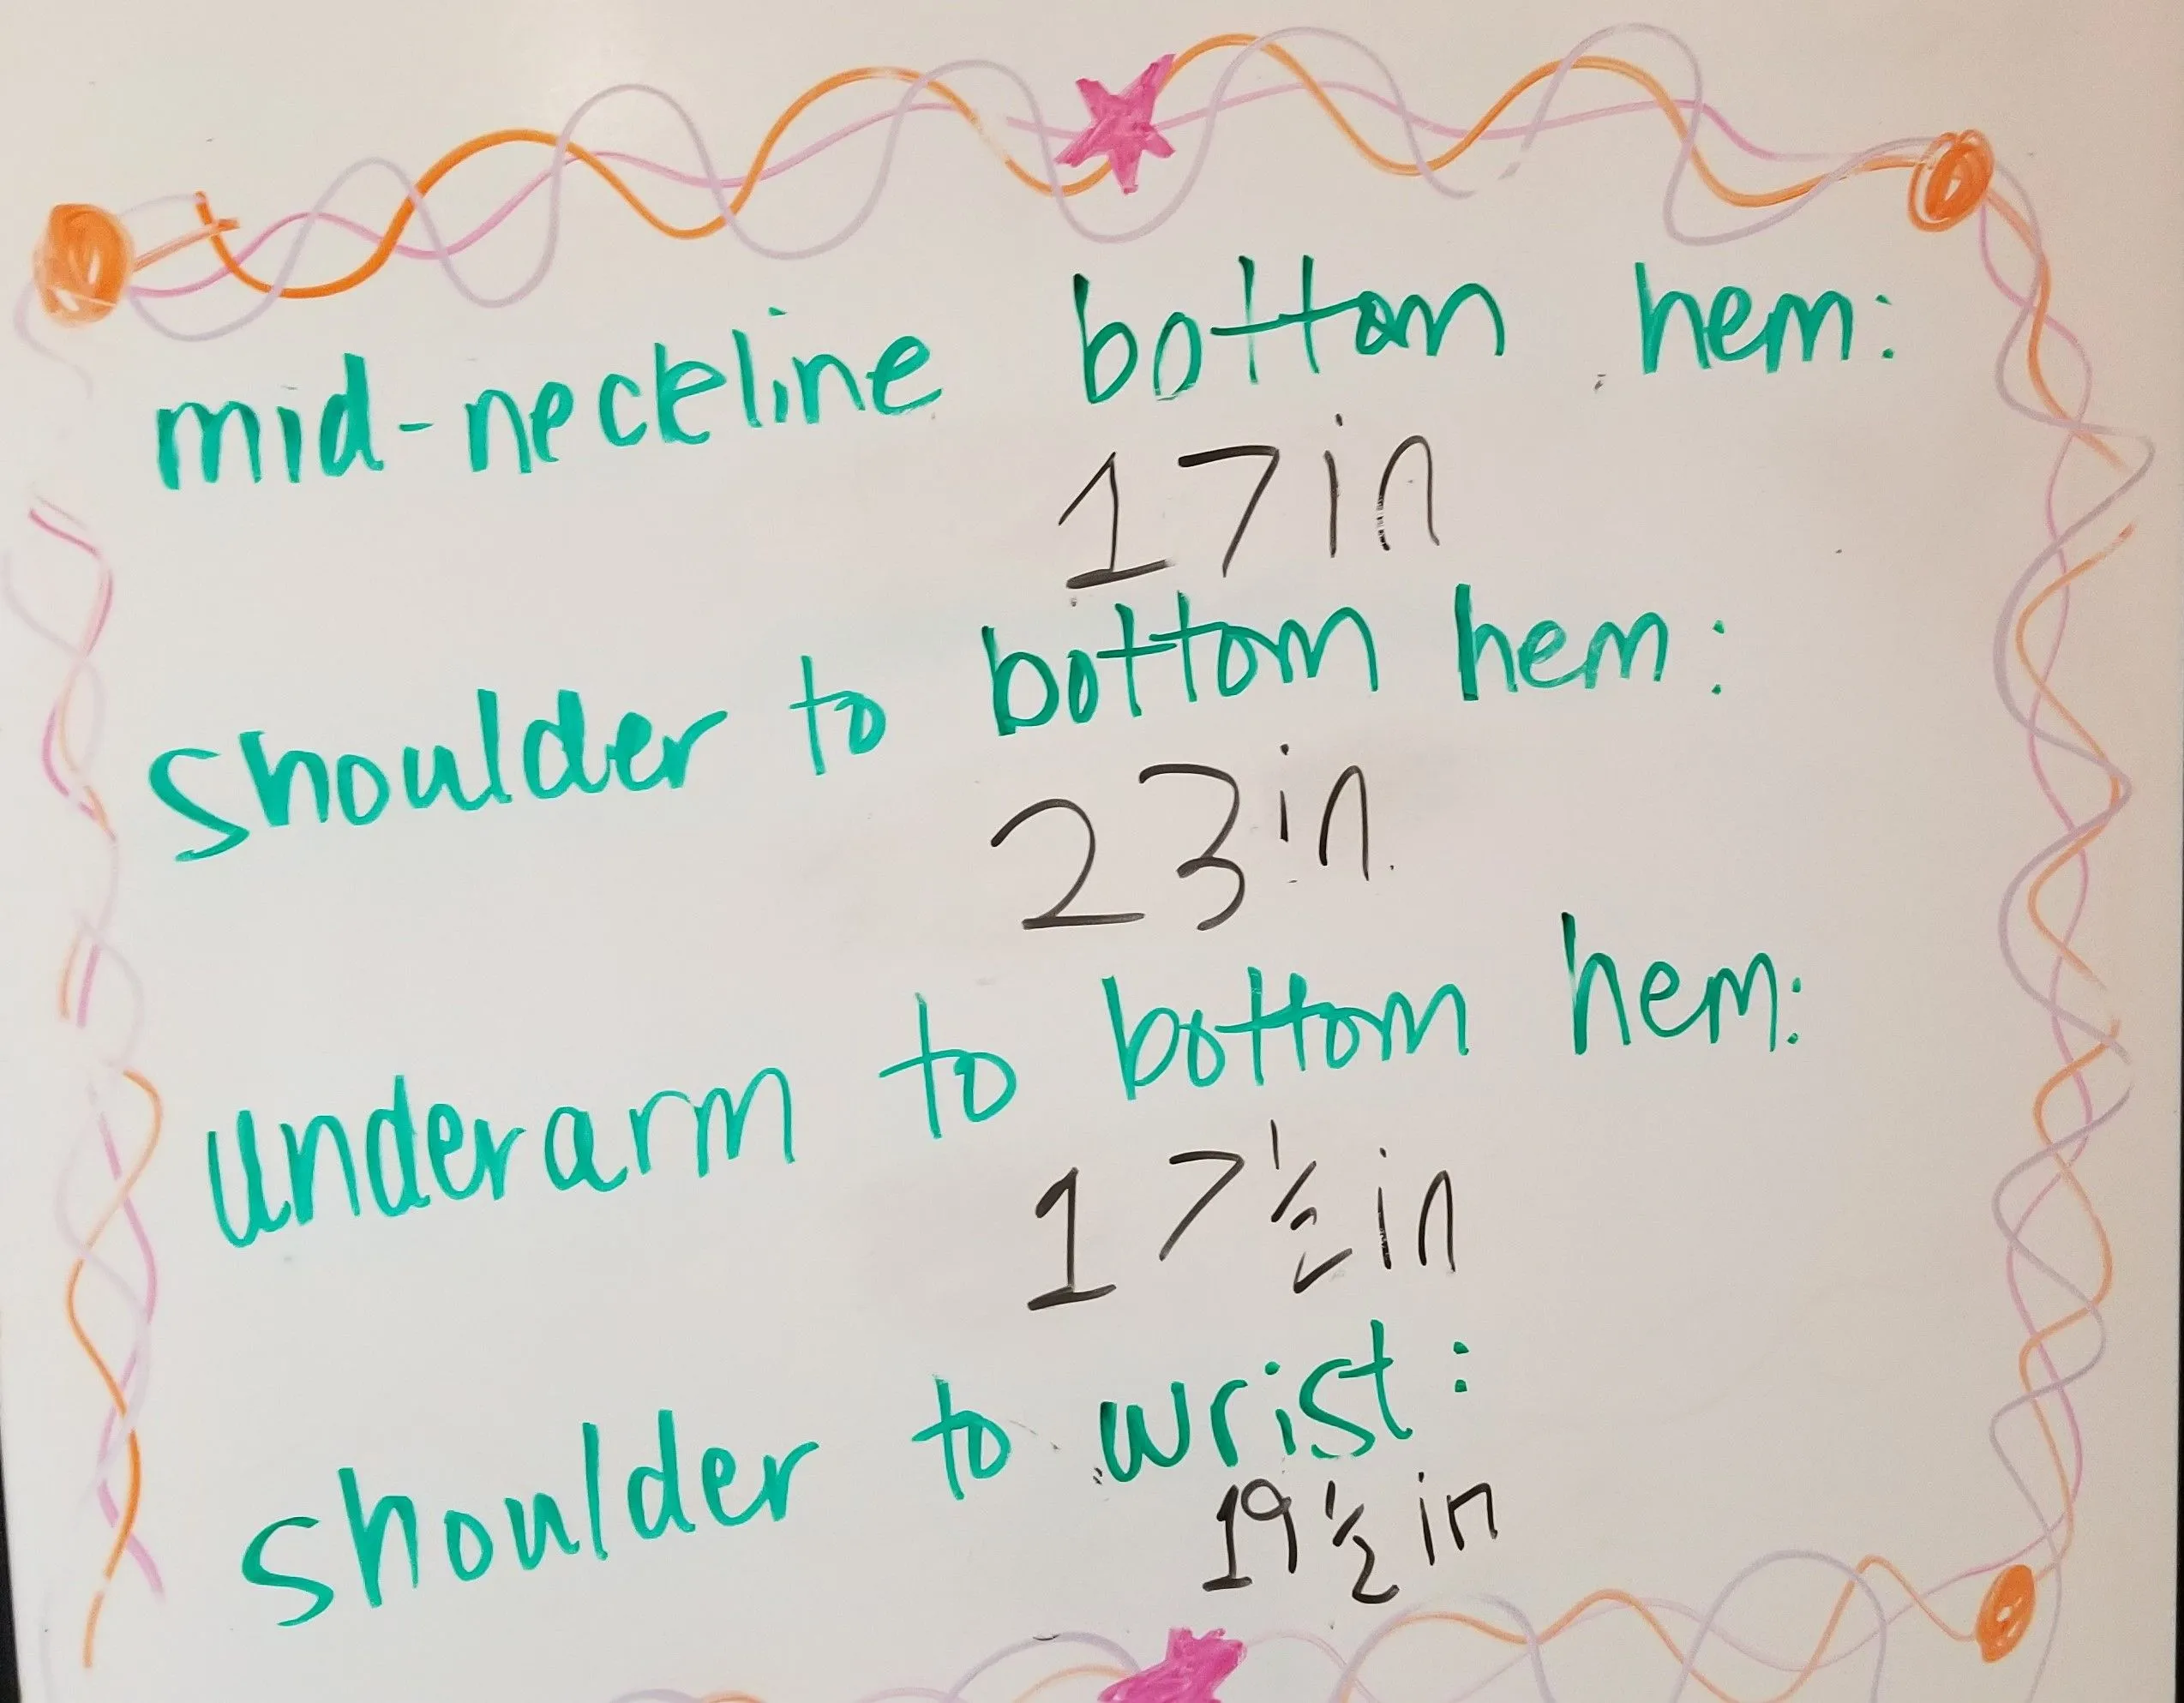 mid-neckline bottom hem:
17in
shoulder to bottom hem:
23in
underarm to bottom hem:
17 1/2 in
shoulder to wrist:
19 1/2 in